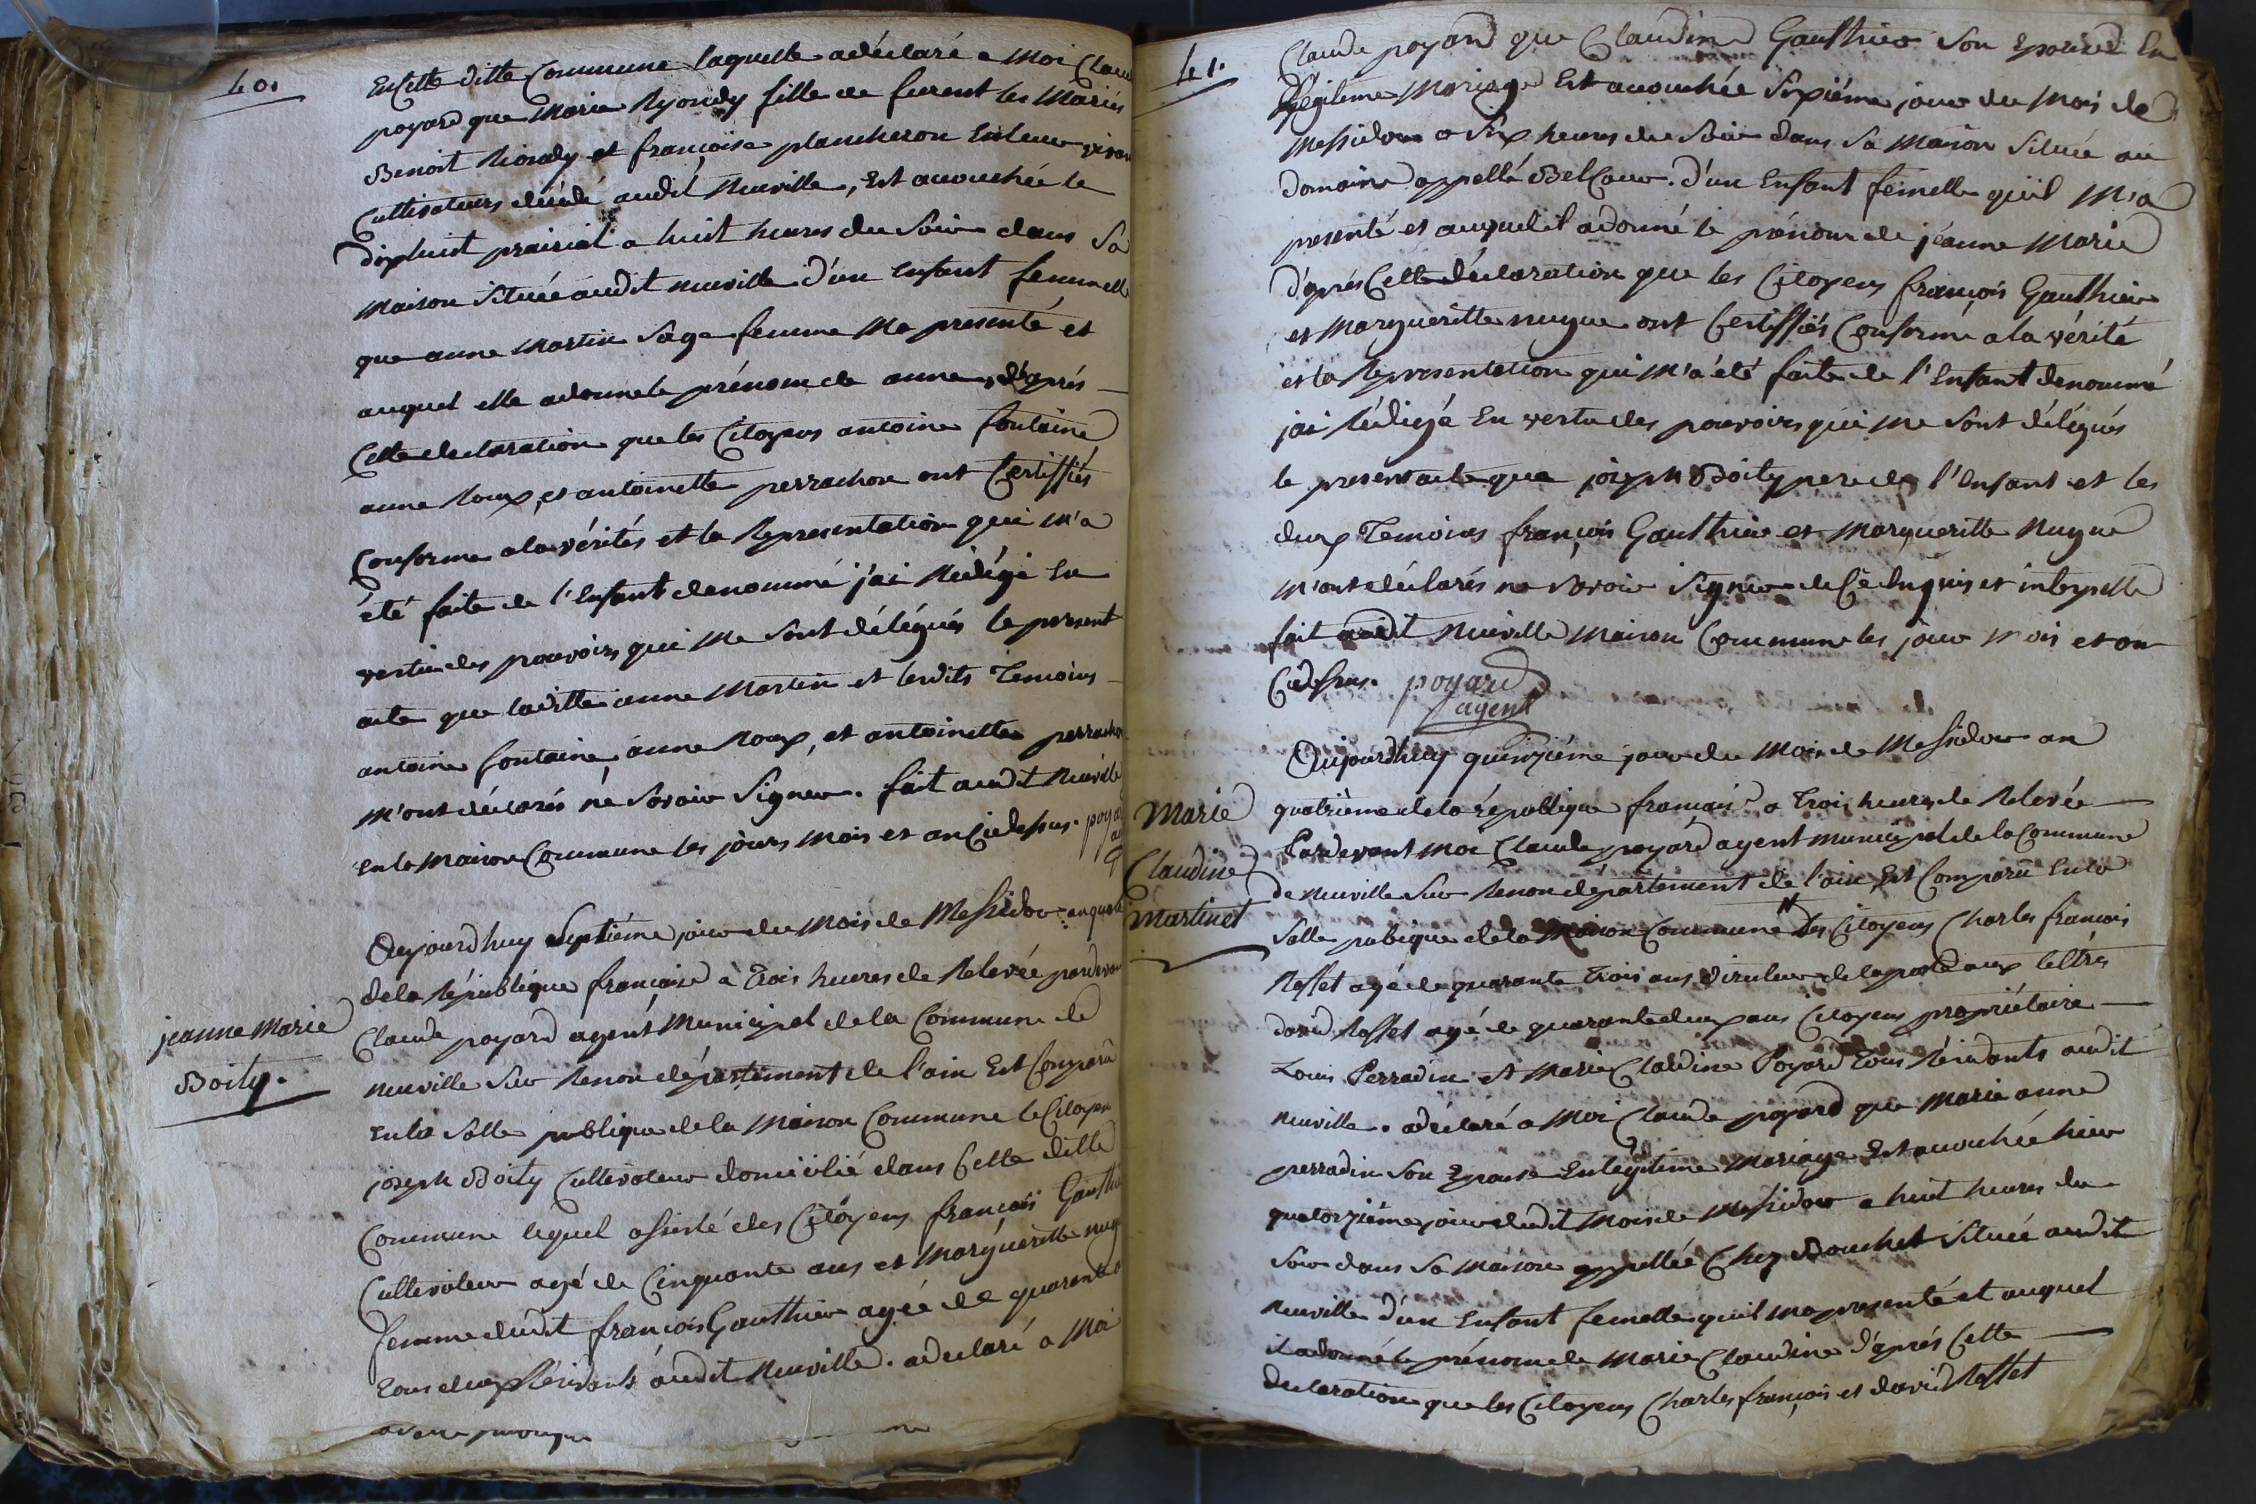 40.
En Cette ditte Commune laquelle a déclaré a Moi Claude
poyard que Marie Ryondy fille de furent les Mariés
Benoit Riondy et françoise plancheron En leur vivant
Cultivateurs décédé audit Neuville, Est acouchée le
dixhuit prairial a huit heures du Soir dans Sa
Maison Située audit neuville d'un Enfant femmelle
que anne Martin Sage femme Ma presenté et
auquel elle a donné le prénom de anne, d'après
Cette declaration que les Citoyens antoine fontaine
anne Roux, et antoinette perrachon ont Certiffiés
Conforme a la vérités et la Representation qui M'a
été faite de l'Enfant denommé j'ai Rédigé En
vertu des pouvoirs qui Me Sont délégués le present
acte que laditte anne Martin et lesdits Temoins
antoine fontaine, anne Roux, et antoinette perrachon
M'ont déclarés ne Savoir Signer. fait audit Neuville
en la Maison Commune les jours Mois et an Cidessus.
jeanne Marie
Boity.
Aujourdhuy Septiéme jour du Mois de Messidor an quatre
de la République française à Trois heures de Relevée pardevant
Claude poyard agent Municipal de la Commune de
neuville Sur Renon département de l'ain Est Comparu
En la Salle publique de la Maison Commune le Citoyen
joseph Boity Cultivateur domicilié dans Cette ditte
Commune lequel assisté des Citoyens françois Gauthier
Cultivateur agé de Cinquante ans et Margueritte nugue
femme dudit françois Gauthier agée de quarante
Tous deux Résidants audit Neuville. a declaré a Moi
41.
Claude poyard que Claudine Gauthier Son Epouse En
Legitime Mariage Est acouchée Sixiéme jour du Mois de
Messidor a Six heures du Soir dans Sa Maison Située au
domaine appellé BelCour. d'un Enfant femelle qu'il M'a
presenté et auquel il a donné le prénom de jeanne Marie
d'après Cette déclaration que les Citoyens françois Gauthier
et Margueritte nugue ont Certiffiés Conforme a la vérité
et la Representation qui M'a été faite de l'Enfant denommé
jai Rédigé En vertu des pouvoirs qui Me Sont délégués
le present acte que joseph Boity pere de l'Enfant et les
deux Temoins françois Gauthier et Margueritte Nugue
M'ont déclarés ne Savoir Signer de Ce Enquis et interpellé
fait audit Neuville Maison Commune les jour Mois et an
Cidessus. poyard
agent
Marie
Claudine
Martinet
Aujourdhuy quinziéme jour du Mois de Messidor an
quatrième de la république francais a Trois heures de Relevée
Pardevant Moi Claude poyard agent Municipal de la Commune
de neuville Sur Renon département de l'ain, Est Comparu En la
Salle publique de la Maison Commune les Citoyens Charles françois
Reffet agé de quarante Trois ans directeur de la poste aux lettres
david Reffet agé de quarante deux ans Citoyens propriétaire
Louis Perradin et Marie Claudine Poyard Tous Résidants audit
neuville. a déclaré a Moi Claude poyard que Marie anne
perradin Son Epouse En legitime Mariage Est acouchée hier
quatorziéme jour dudit Mois de Messidor a huit heures du
Soir dans Sa Maison appellée Chez Bouchet Située audit
neuville d'un Enfant femelle qu'il Ma presenté et auquel
il a donné le prénom de Marie Claudine d'après Cette
declaration que les Citoyens Charles françois et david Reffet